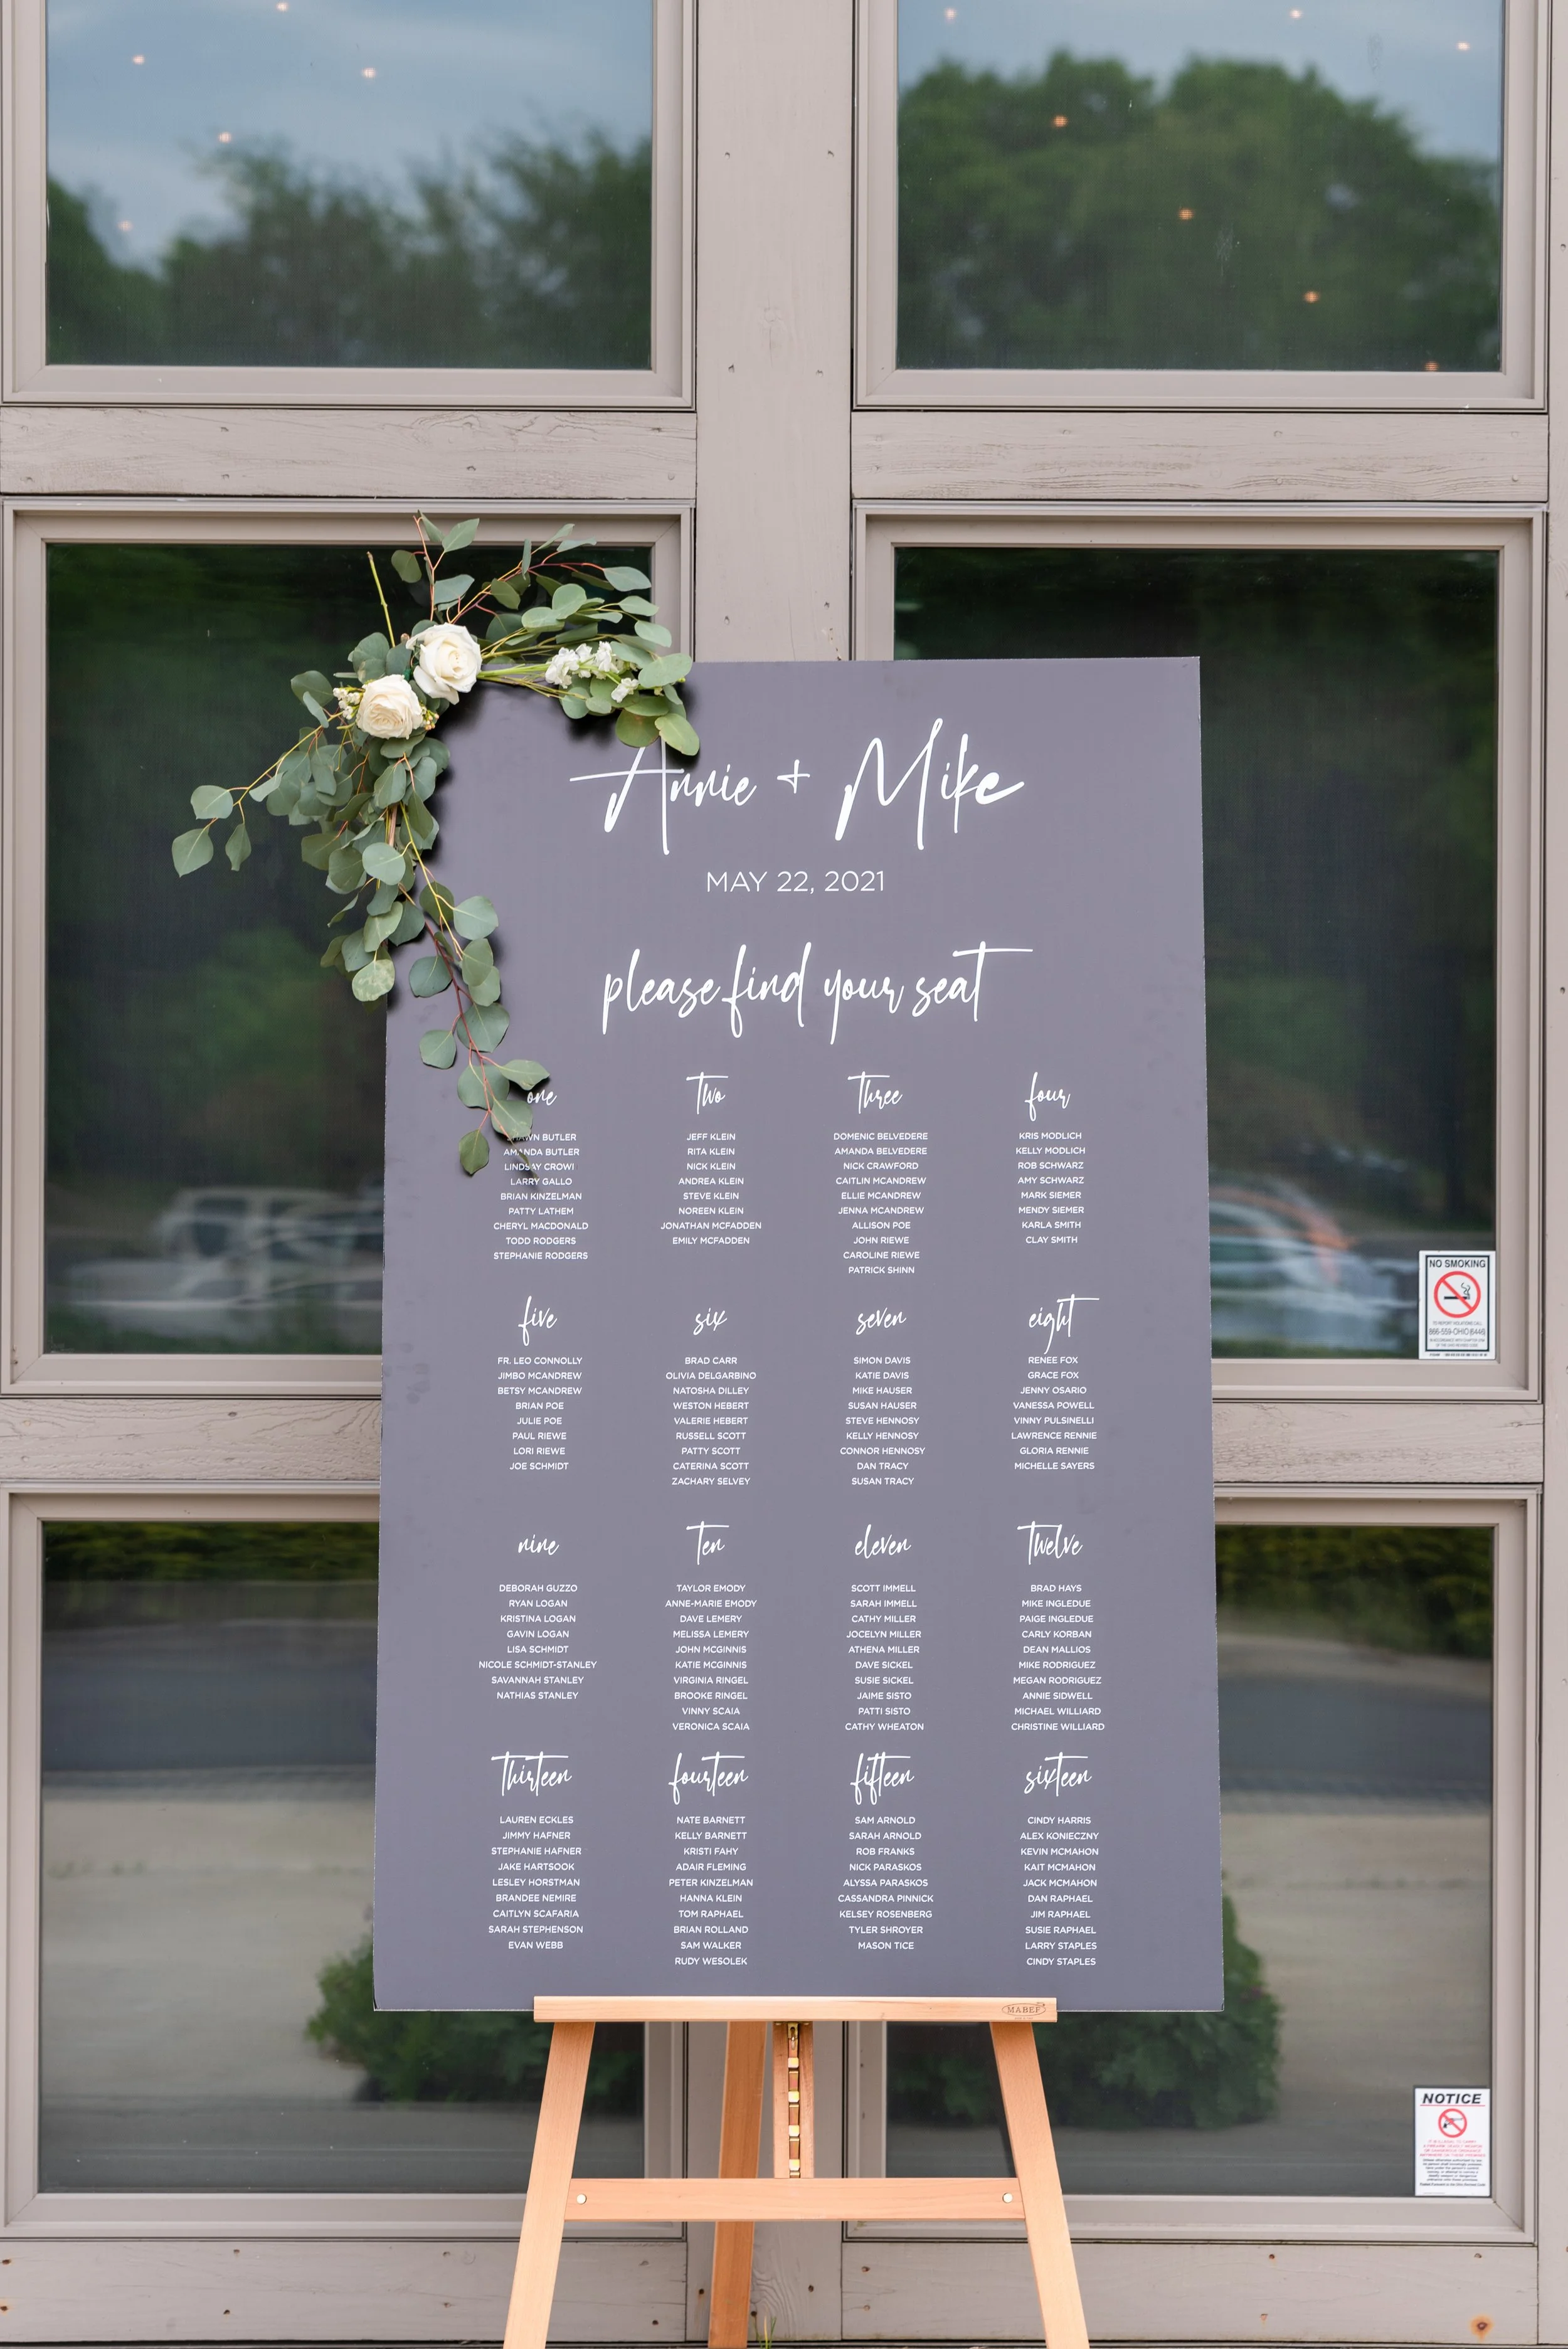 Annie + Mike
MAY 22, 2021
please find your seat
one
BUTLER
AMANDA BUTLER
LINDSAY CROWL
LARRY GALLO
BRIAN KINZELMAN
PATTY LATHEM
CHERYL MACDONALD
TODD RODGERS
STEPHANIE RODGERS
two
JEFF KLEIN
RITA KLEIN
NICK KLEIN
ANDREA KLEIN
STEVE KLEIN
NOREEN KLEIN
JONATHAN MCFADDEN
EMILY MCFADDEN
three
DOMENIC BELVEDERE
AMANDA BELVEDERE
NICK CRAWFORD
CAITLIN MCANDREW
ELLIE MCANDREW
JENNA MCANDREW
ALLISON POE
JOHN RIEWE
CAROLINE RIEWE
PATRICK SHINN
four
KRIS MODLICH
KELLY MODLICH
ROB SCHWARZ
AMY SCHWARZ
MARK SIEMER
MENDY SIEMER
KARLA SMITH
CLAY SMITH
five
FR. LEO CONNOLLY
JIMBO MCANDREW
BETSY MCANDREW
BRIAN POE
JULIE POE
PAUL RIEWE
LORI RIEWE
JOE SCHMIDT
six
BRAD CARR
OLIVIA DELGARBINO
NATOSHA DILLEY
WESTON HEBERT
VALERIE HEBERT
RUSSELL SCOTT
PATTY SCOTT
CATERINA SCOTT
ZACHARY SELVEY
seven
SIMON DAVIS
KATIE DAVIS
MIKE HAUSER
SUSAN HAUSER
STEVE HENNOSY
KELLY HENNOSY
CONNOR HENNOSY
DAN TRACY
SUSAN TRACY
eight
RENEE FOX
GRACE FOX
JENNY OSARIO
VANESSA POWELL
VINNY PULSINELLI
LAWRENCE RENNIE
GLORIA RENNIE
MICHELLE SAYERS
nine
DEBORAH GUZZO
RYAN LOGAN
KRISTINA LOGAN
GAVIN LOGAN
LISA SCHMIDT
NICOLE SCHMIDT-STANLEY
SAVANNAH STANLEY
NATHIAS STANLEY
ten
TAYLOR EMODY
ANNE-MARIE EMODY
DAVE LEMERY
MELISSA LEMERY
JOHN MCGINNIS
KATIE MCGINNIS
VIRGINIA RINGEL
BROOKE RINGEL
VINNY SCAIA
VERONICA SCAIA
eleven
SCOTT IMMELL
SARAH IMMELL
CATHY MILLER
JOCELYN MILLER
ATHENA MILLER
DAVE SICKEL
SUSIE SICKEL
JAIME SISTO
PATTI SISTO
CATHY WHEATON
twelve
BRAD HAYS
MIKE INGLEDUE
PAIGE INGLEDUE
CARLY KORBAN
DEAN MALLIOS
MIKE RODRIGUEZ
MEGAN RODRIGUEZ
ANNIE SIDWELL
MICHAEL WILLIARD
CHRISTINE WILLIARD
thirteen
LAUREN ECKLES
JIMMY HAFNER
STEPHANIE HAFNER
JAKE HARTSOOK
LESLEY HORSTMAN
BRANDEE NEMIRE
CAITLYN SCAFARIA
SARAH STEPHENSON
EVAN WEBB
fourteen
NATE BARNETT
KELLY BARNETT
KRISTI FAHY
ADAIR FLEMING
PETER KINZELMAN
HANNA KLEIN
TOM RAPHAEL
BRIAN ROLLAND
SAM WALKER
RUDY WESOLEK
fifteen
SAM ARNOLD
SARAH ARNOLD
ROB FRANKS
NICK PARASKOS
ALYSSA PARASKOS
CASSANDRA PINNICK
KELSEY ROSENBERG
TYLER SHROYER
MASON TICE
sixteen
CINDY HARRIS
ALEX KONIECZNY
KEVIN MCMAHON
KAIT MCMAHON
JACK MCMAHON
DAN RAPHAEL
JIM RAPHAEL
SUSIE RAPHAEL
LARRY STAPLES
CINDY STAPLES
MABEF
NO SMOKING
TO REPORT VIOLATIONS CALL
866-559-OHIO(6446)
NOTICE